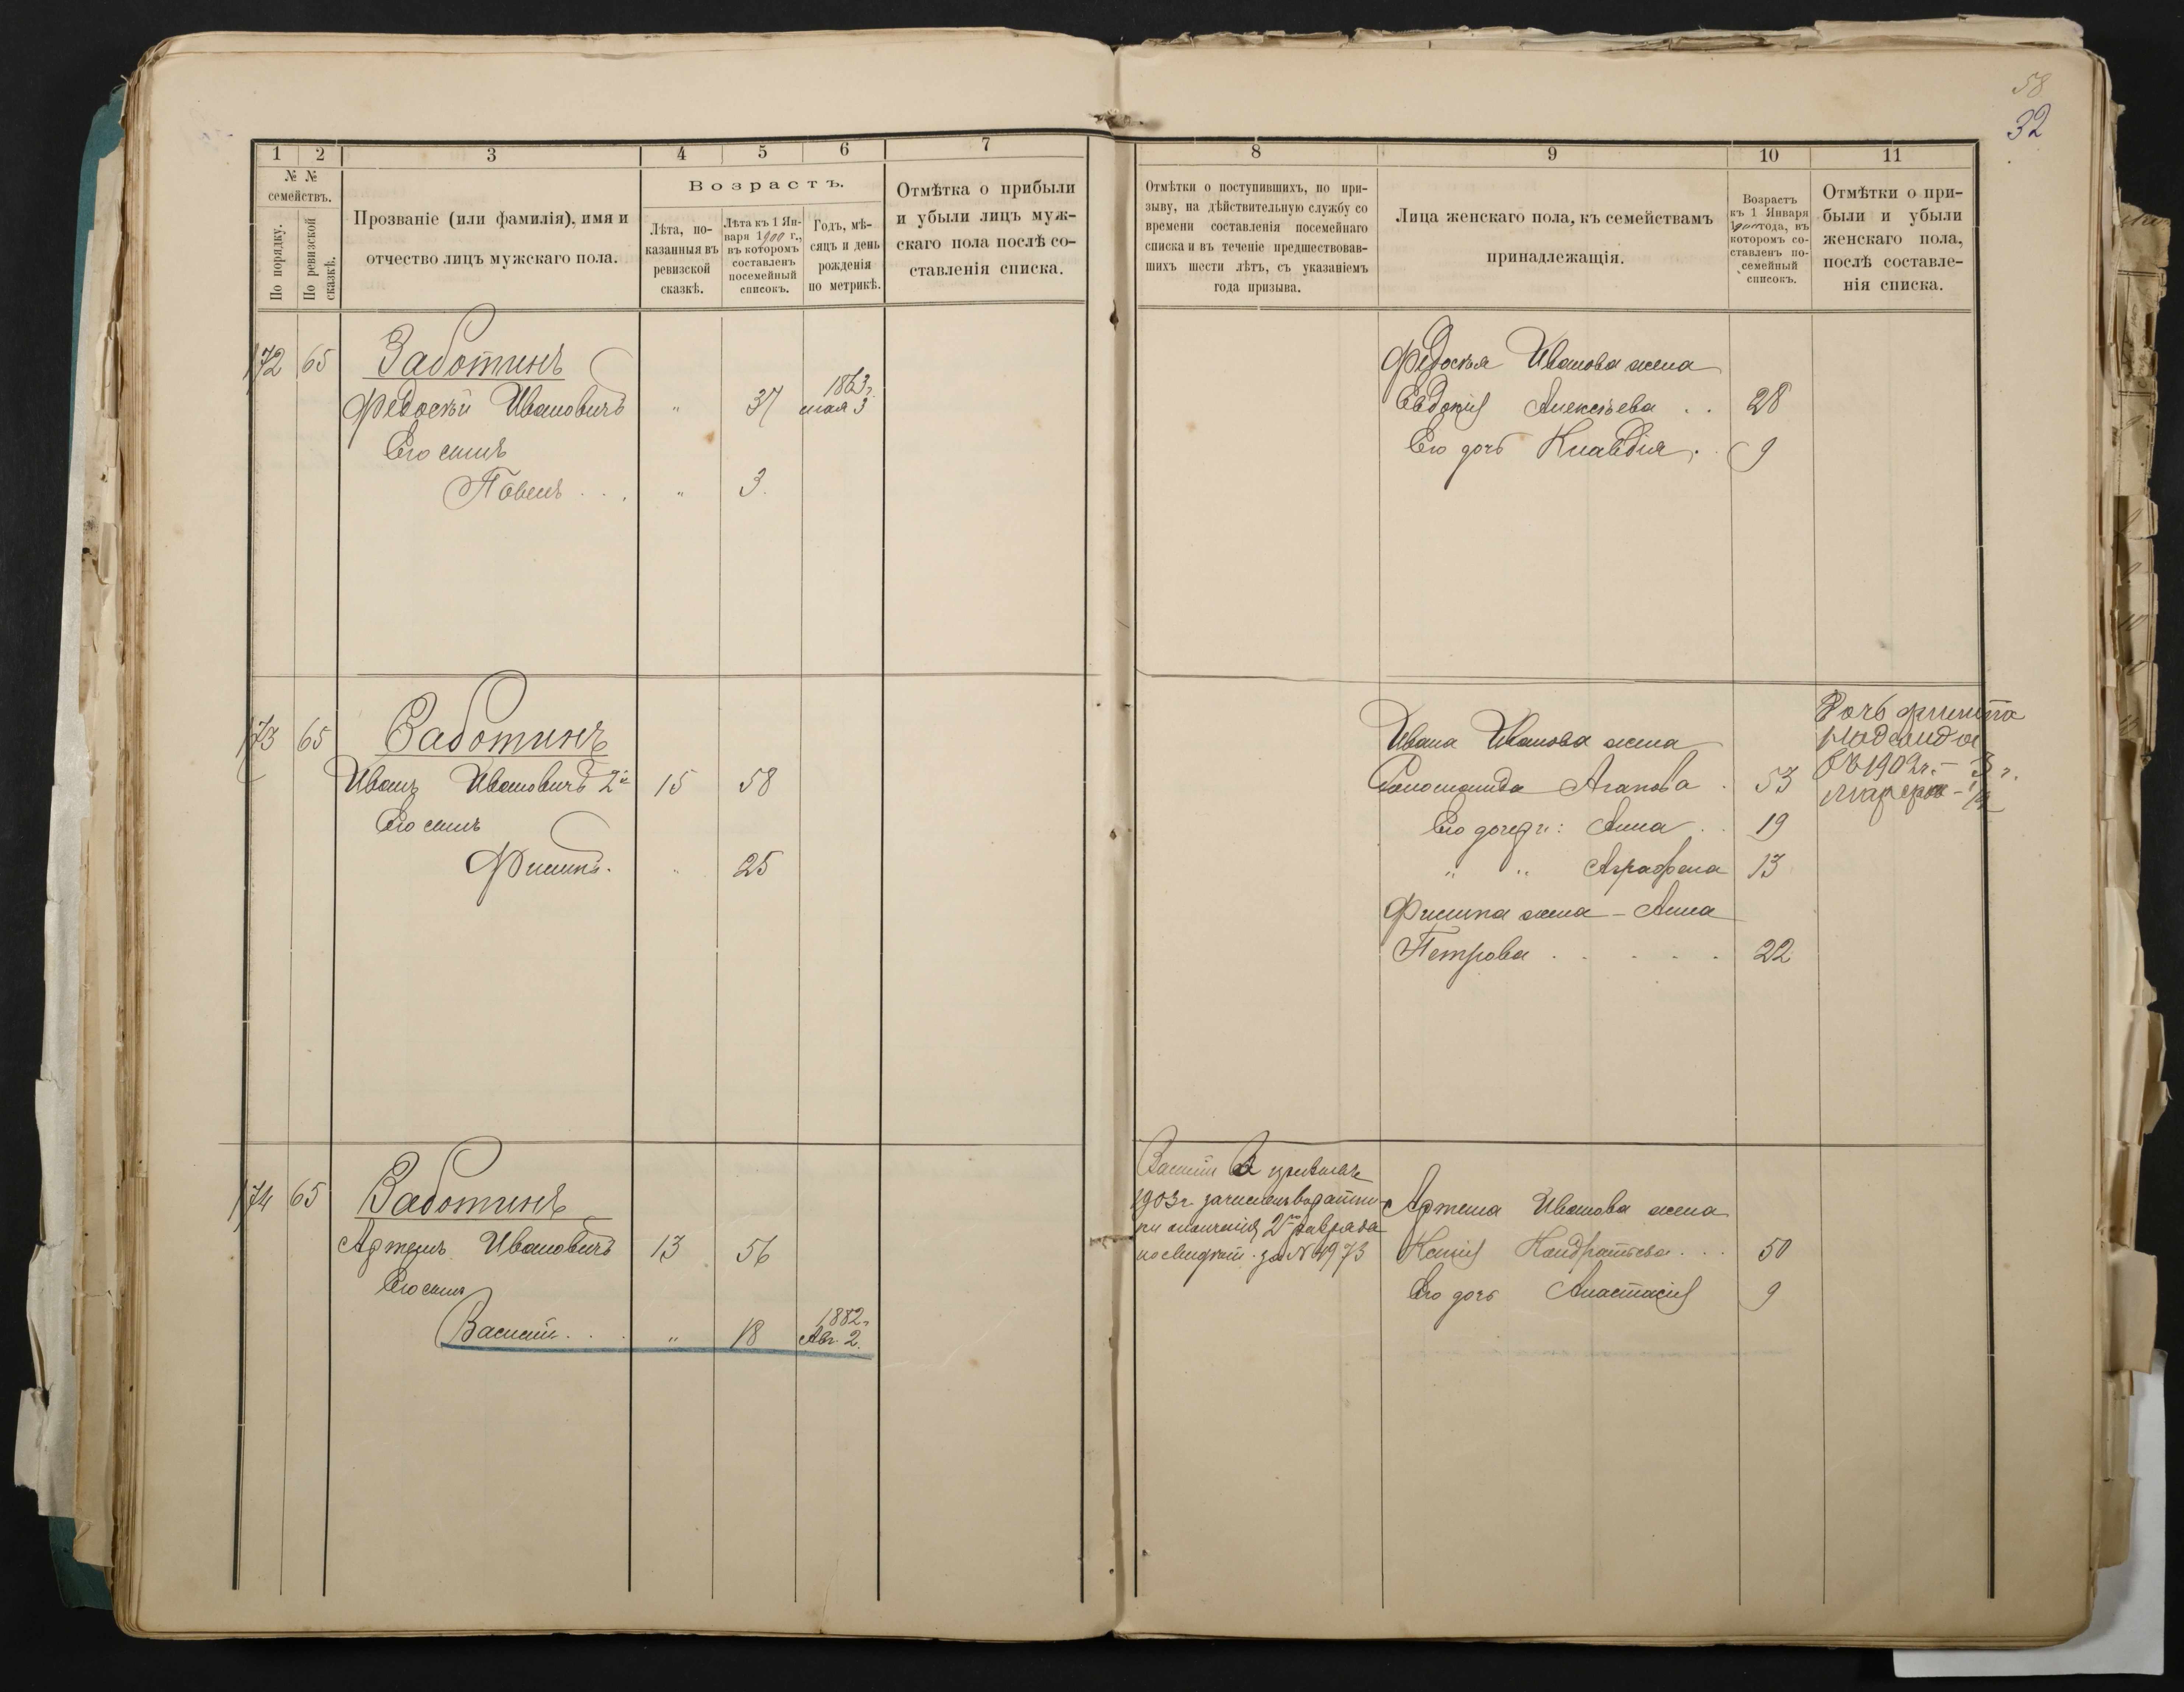 58
32
1 2 3 4 5 6 7
№ №
семействъ.
По порядку.
По ревизской
сказкѣ.
Прозваніе (или фамилія), имя и
отчество лицъ мужскаго пола.
Возрастъ.
Лѣта, по-
казанныя въ
ревизской
сказкѣ.
Лѣта къ 1 Ян-
варя 1900 г.,
въ которомъ
составленъ
посемейный
списокъ.
Годъ, мѣ-
сяцъ и день
рожденія
по метрикѣ.
Отмѣтка о прибыли
и убыли лицъ муж-
скаго пола послѣ со-
ставленія списка.
172 65 Заботинъ
Федосѣй Ивановичъ " 37 1863 г.
мая 3
Его сынъ
Павелъ . . . " 3.
173 65 Заботинъ
Иванъ Ивановичъ 2й 15 58
Его сынъ
Филипъ. " 25
174 65 Заботинъ
Артемъ Ивановичъ 13 56
Его сынъ
Василій . . . " 18 1882 г.
Авг. 2.
8 9 10 11
Отмѣтки о поступившихъ, по при-
зыву, на дѣйствительную службу со
времени составленія посемейнаго
списка и въ теченіе предшествовав-
шихъ шести лѣтъ, съ указаніемъ
года призыва.
Лица женскаго пола, къ семействамъ
принадлежащія.
Возрастъ
къ 1 Января
1900 года, въ
которомъ со-
ставленъ по-
семейный
списокъ.
Отмѣтки о при-
были и убыли
женскаго пола,
послѣ составле-
нія списка.
Федосѣя Иванова жена
Евдокія Алексѣева . . 28
Его дочь Клавдія . 9
Ивана Иванова жена
Соломанида Агапова . 53
Его дочери: Анна . . 19
" " Аграфена 13
Филипа жена – Анна
Петрова . . . . . 22
Дочь Филипа
род
въ 1902 г. –
Василій въ призывъ
1903 г. зачисленъ въ ратни-
ки ополченія 2го разряда
по свидѣт. за № 4973
Артема Иванова жена
Ксенія Кандратьева . . . 50
Его дочь Анастасія 9